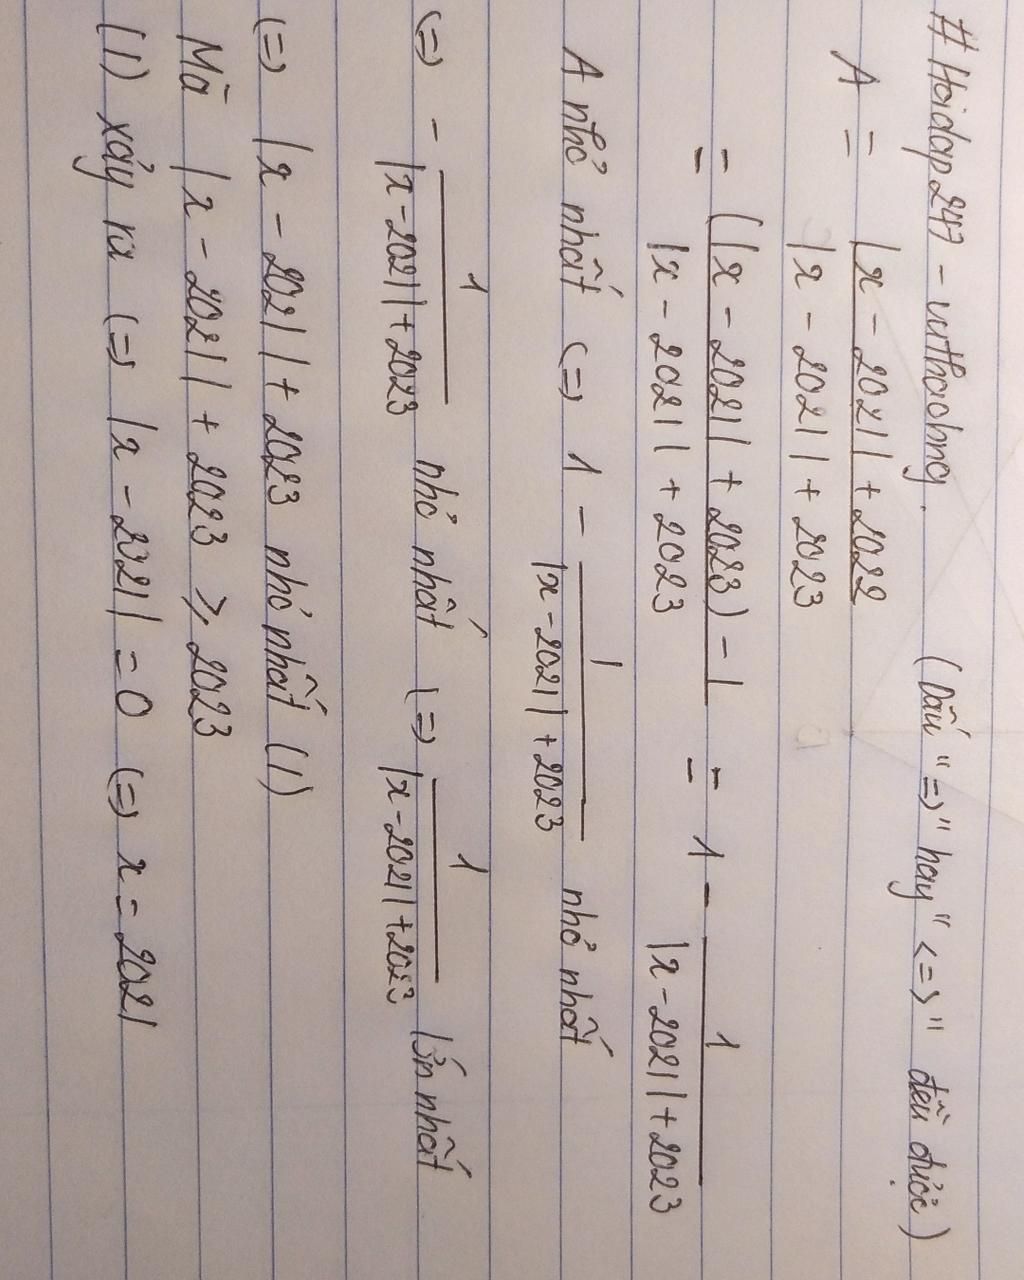 # Hoidap247 - vuthaobng. (Dấu "=>" hay "<=>" đều được)
A = |x - 2021| + 2022 / |x - 2021| + 2023
= (|x - 2021| + 2023) - 1 / |x - 2021| + 2023 = 1 - 1 / |x - 2021| + 2023
A nhỏ nhất <=> 1 - 1 / |x - 2021| + 2023 nhỏ nhất
<=> - 1 / |x - 2021| + 2023 nhỏ nhất <=> 1 / |x - 2021| + 2023 lớn nhất
<=> |x - 2021| + 2023 nhỏ nhất (1)
Mà |x - 2021| + 2023 ≥ 2023
(1) xảy ra <=> |x - 2021| = 0 <=> x = 2021